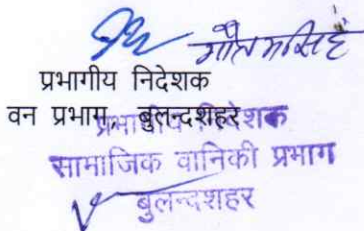 गौतम सिंह
प्रभागीय निदेशक
वन प्रभाग, बुलन्दशहर
प्रभागीय निदेशक
सामाजिक वानिकी प्रभाग
बुलन्दशहर